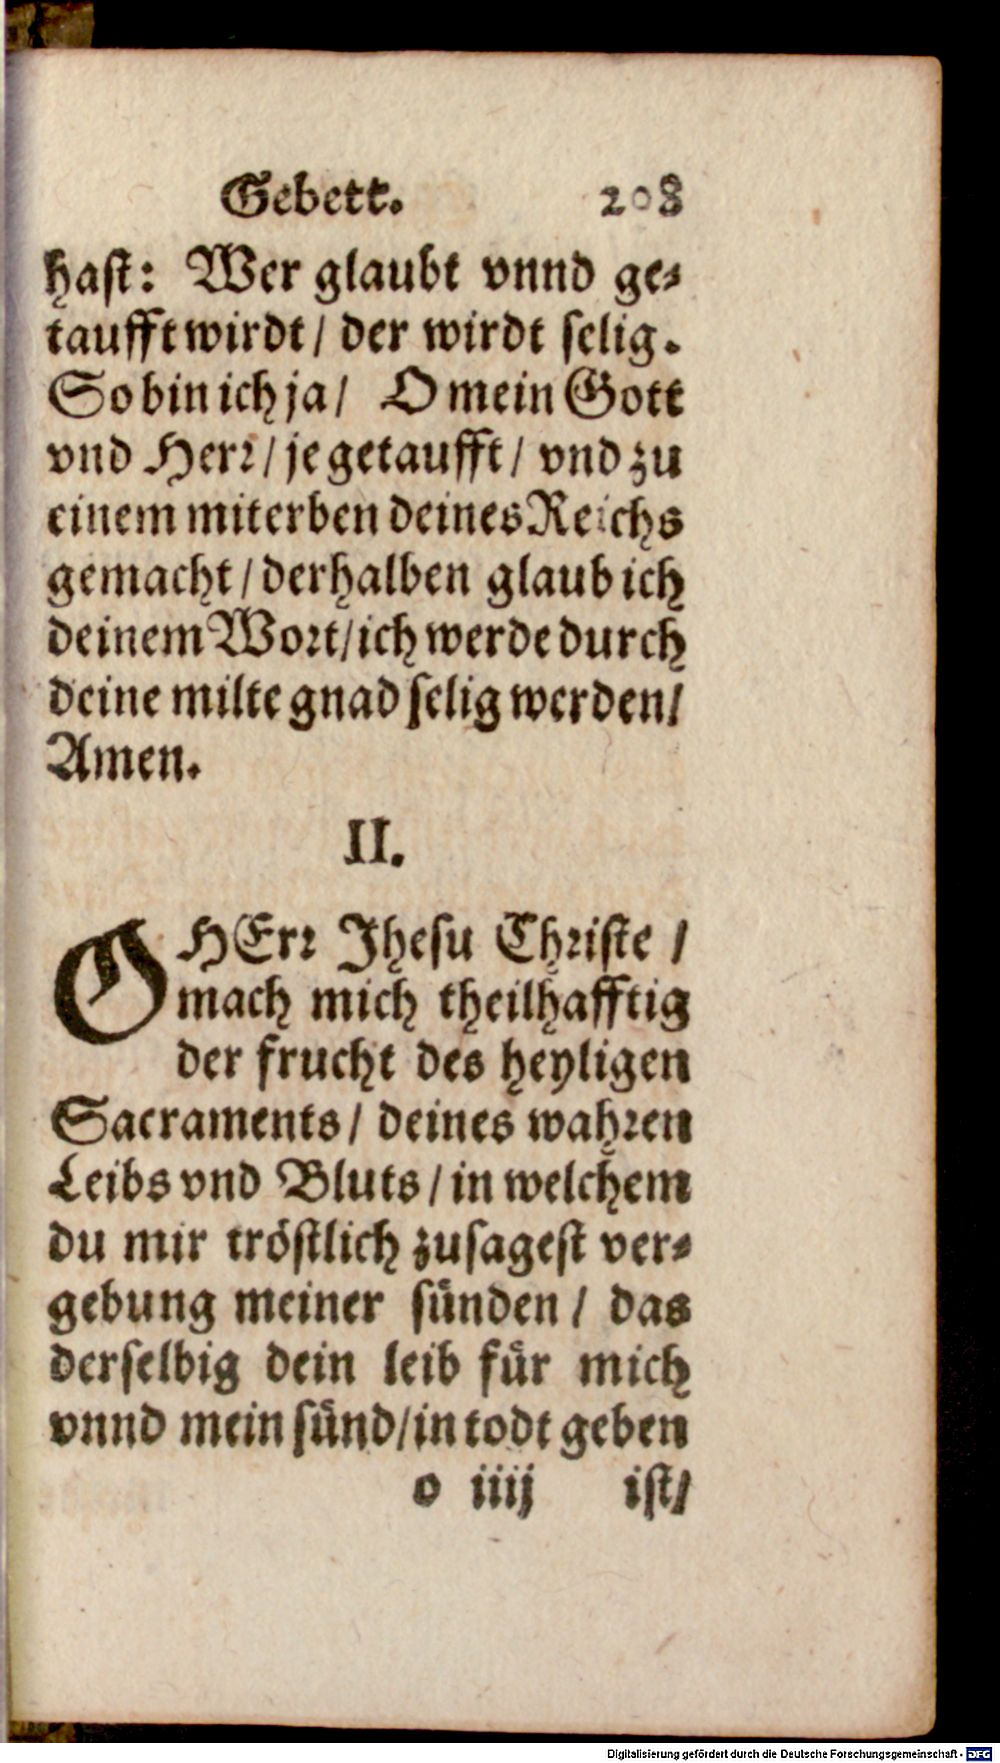 Gebett. 208
hast: Wer glaubt vnnd ge-
taufft wirdt / der wirdt selig.
So bin ich ja / O mein Gott
vnd Herr / je getaufft / vnd zu
einem miterben deines Reichs
gemacht / derhalben glaub ich
deinem Wort / ich werde durch
deine milte gnad selig werden /
Amen.
II.
O HErr Jhesu Christe /
mach mich theilhafftig
der frucht des heyligen
Sacraments / deines wahren
Leibs vnd Bluts / in welchem
du mir tröstlich zusagest ver-
gebung meiner sünden / das
derselbig dein leib für mich
vnnd mein sünd / in todt geben
o iiij ist /
Digitalisierung gefördert durch die Deutsche Forschungsgemeinschaft - DFG